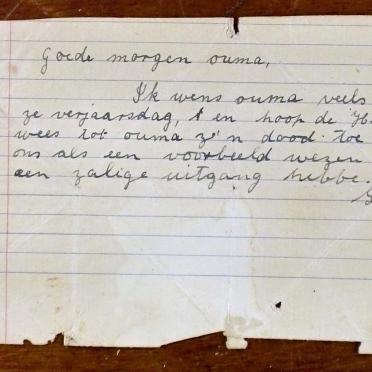 Goede morgen ouma,
Ik wens ouma veels
ze verjaarsdag, & en hoop de H
wees tot ouma ze'n dood. Toe
ons als een voorbeeld wezen
een zalige uitgang hebbe.